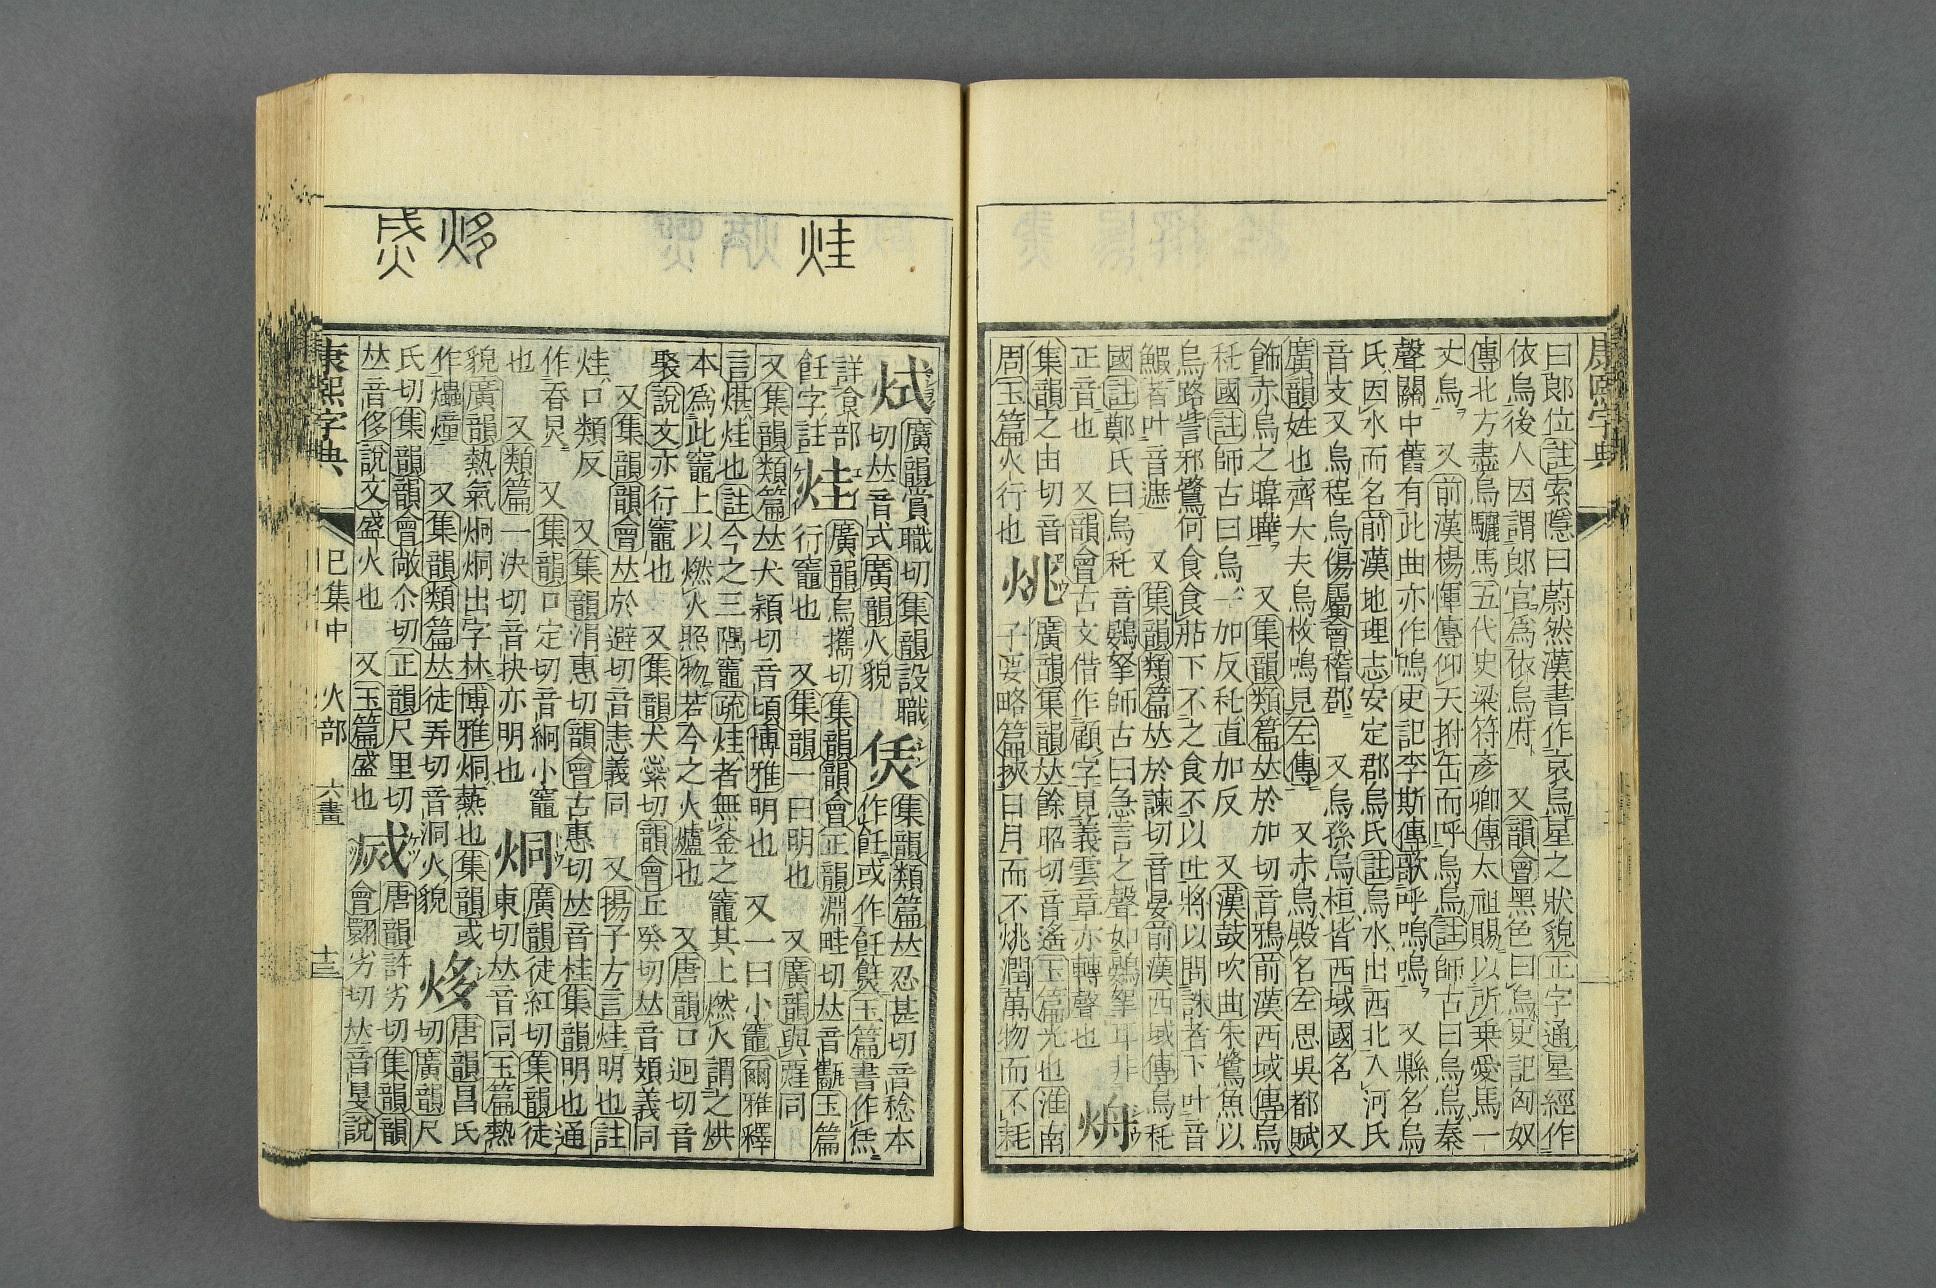 曰郞位註索隱曰蔚然漢書作哀烏星之狀貌正字通星經作
依烏後人因謂郞官爲依烏府 又韻會黑色曰烏史記匈奴
傳北方盡烏驪馬五代史梁符彥卿傳太祖賜以所乗愛馬一
丈烏 又前漢楊惲傳仰天拊缶而呼烏烏註師古曰烏烏秦
聲關中舊有此曲亦作嗚史記李斯傳歌呼嗚嗚 又縣名烏
氏因水而名前漢地理志安定郡烏氏註烏水出西北入河氏
音支又烏程烏傷屬會稽郡 又烏孫烏桓皆西域國名 又
廣韻姓也齊大夫烏枚鳴見左傳 又赤烏殿名左思吳都賦
飾赤烏之暐曄 又集韻類篇𠀤於加切音鴉前漢西域傳烏
秅國註師古曰烏一加反秅直加反 又漢鼓吹曲朱鷺魚以
烏路訾邪鷺何食食茄下不之食不以吐將以問誅者下叶音
鰕者叶音遮 又集韻類篇𠀤於諫切音晏前漢西域傳烏秅
國註鄭氏曰烏秅音鷃拏師古曰急言之聲如鷃拏耳非
正音也 又韻會古文借作顧字見義雲章亦轉聲也 烐
集韻之由切音
周玉篇火行也 烑 廣韻集韻𠀤餘昭切音遙玉篇光也淮南
子要略篇挾日月而不烑潤萬物而不耗
烒 廣韻賞職切集韻設職
切𠀤音式廣韻火貌 恁 集韻類篇𠀤忍甚切音稔本
作飪或作飪餁玉篇書作恁
詳食部
飪字註 烓 廣韻烏攜切集韻韻會正韻淵畦切𠀤音㼇玉篇
行竈也 又集韻一曰明也 又廣韻與煃同
又集韻類篇𠀤犬穎切音頃博雅明也 又一曰小竈爾雅釋
言煁烓也註今之三隅竈疏烓者無釜之竈其上燃火謂之烘
本爲此竈上以燃火照物若今之火爐也 又唐韻口迥切音
聚說文亦行竈也 又集韻犬橤切韻會丘癸切𠀤音頍義同
又集韻韻會𠀤於避切音恚義同 又揚子方言烓明也註
烓口類反 又集韻涓惠切韻會古惠切𠀤音桂集韻明也通
作吞炅 又集韻口定切音絅小竈
也 又類篇一決切音抉亦明也 烔 廣韻徒紅切集韻徒
東切𠀤音同玉篇熱
貌廣韻熱氣烔烔出字林博雅烔爇也集韻或
作爞燑 又集韻類篇𠀤徒弄切音洞火貌 㶴 唐韻昌氏
切廣韻尺
氏切集韻韻會敞尒切正韻尺里切
𠀤音侈說文盛火也 又玉篇盛也 烕 唐韻許劣切集韻韻
會翾劣切𠀤音旻說
烓
㶴
烕
康熙字典 巳集中 火部 六畫 十三
康熙字典